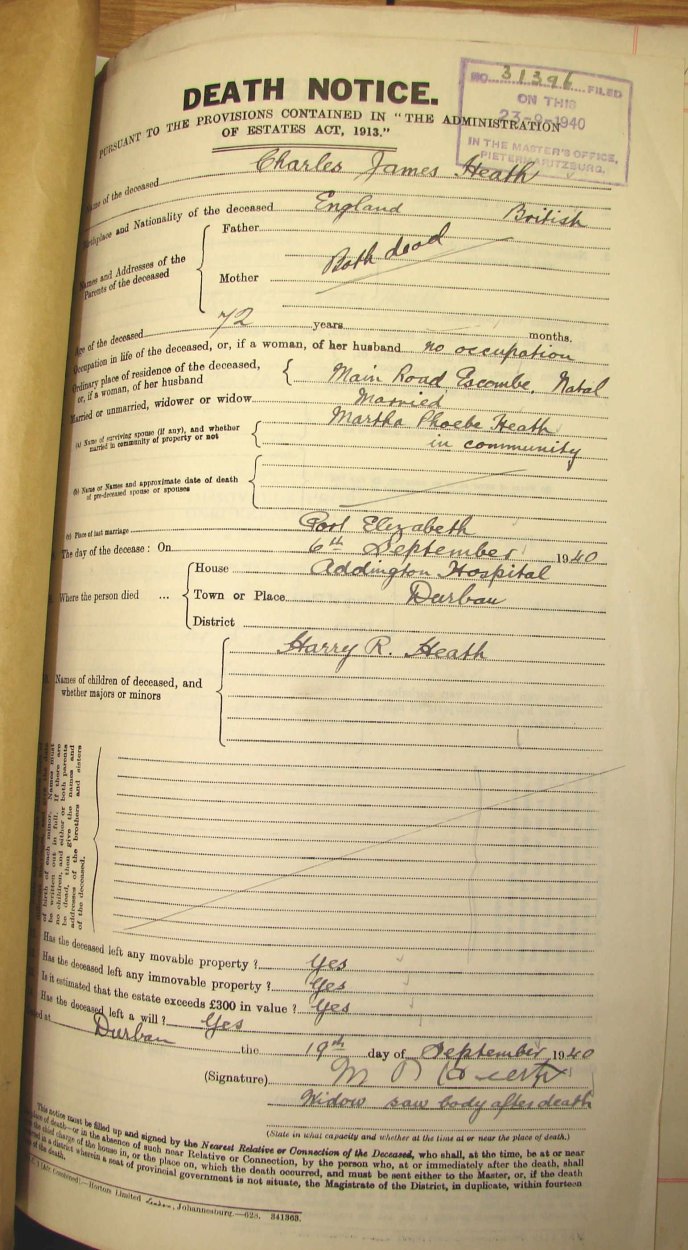 DEATH NOTICE.
NO. 31396 FILED
ON THIS
23-9-1940
IN THE MASTER'S OFFICE,
PIETERMARITZBURG.
PURSUANT TO THE PROVISIONS CONTAINED IN "THE ADMINISTRATION
OF ESTATES ACT, 1913."
Name of the deceased Charles James Heath
Birthplace and Nationality of the deceased England British
Names and Addresses of the Parents of the deceased
Father
Both dead
Mother
Age of the deceased 72 years months.
Occupation in life of the deceased, or, if a woman, of her husband no occupation
Ordinary place of residence of the deceased,
or, if a woman, of her husband Main Road Escombe, Natal
Married or unmarried, widower or widow Married
(a) Name of surviving spouse (if any), and whether Martha Phoebe Heath
married in community of property or not in community
(b) Name or Names and approximate date of death
of pre-deceased spouse or spouses
(c) Place of last marriage Port Elizabeth
The day of the decease: On 6th September 1940
House Addington Hospital
Where the person died ... Town or Place Durban
District
Harry R. Heath
Names of children of deceased, and
whether majors or minors
of birth of each minor. Names must
be written out in full. If there are
no children, and either or both parents
be dead, then give the names and
addresses of the brothers and sisters
of the deceased.
Has the deceased left any movable property ? Yes
Has the deceased left any immovable property ? Yes
Is it estimated that the estate exceeds £300 in value ? Yes
Has the deceased left a will ? Yes
at Durban the 19th day of September 1940
(Signature) M P Heath
Widow saw body after death
(State in what capacity and whether at the time at or near the place of death.)
This notice must be filled up and signed by the Nearest Relative or Connection of the Deceased, who shall, at the time, be at or near
place of death—or in the absence of such near Relative or Connection, by the person who, at or immediately after the death, shall
the chief charge of the house in, or the place on, which the death occurred, and must be sent either to the Master, or, if the death
in a district wherein a seat of provincial government is not situate, the Magistrate of the District, in duplicate, within fourteen
of the death.
—Hortors Limited London, Johannesburg.—628. 341363.